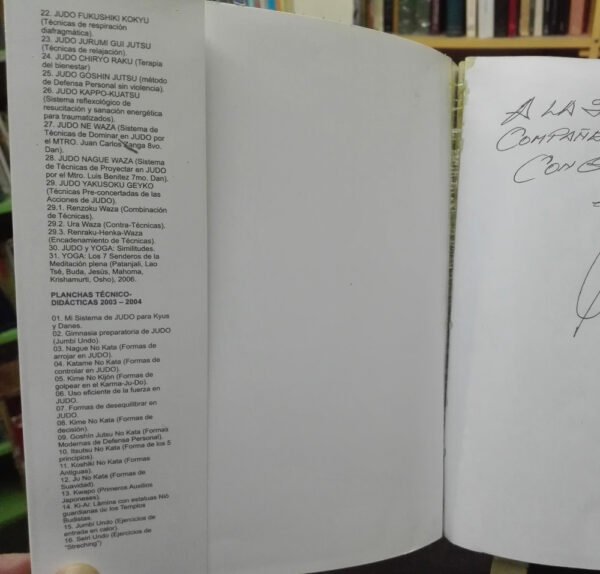 22. JUDO FUKUSHIKI KOKYU
(Técnicas de respiración
diafragmática).
23. JUDO JURUMI GUI JUTSU
(Técnicas de relajación).
24. JUDO CHIRYO RAKU (Terapia
del bienestar)
25. JUDO GOSHIN JUTSU (método
de Defensa Personal sin violencia).
26. JUDO KAPPO-KUATSU
(Sistema reflexológico de
resucitación y sanación energética
para traumatizados).
27. JUDO NE WAZA (Sistema de
Técnicas de Dominar en JUDO por
el MTRO. Juan Carlos Zanga 8vo.
Dan).
28. JUDO NAGUE WAZA (Sistema
de Técnicas de Proyectar en JUDO
por el Mtro. Luis Benítez 7mo. Dan).
29. JUDO YAKUSOKU GEYKO
(Técnicas Pre-concertadas de las
Acciones de JUDO).
29.1. Renzoku Waza (Combinación
de Técnicas).
29.2. Ura Waza (Contra-Técnicas).
29.3. Renraku-Henka-Waza
(Encadenamiento de Técnicas).
30. JUDO y YOGA: Similitudes.
31. YOGA: Los 7 Senderos de la
Meditación plena (Patanjali, Lao
Tsé, Buda, Jesús, Mahoma,
Krishamurti, Osho), 2006.
PLANCHAS TÉCNICO-
DIDÁCTICAS 2003 – 2004
01. Mi Sistema de JUDO para Kyus
y Danes.
02. Gimnasia preparatoria de JUDO
(Jumbi Undo).
03. Nague No Kata (Formas de
arrojar en JUDO).
04. Katame No Kata (Formas de
controlar en JUDO).
05. Kime No Kijón (Formas de
golpear en el Karma-Ju-Do).
06. Uso eficiente de la fuerza en
JUDO.
07. Formas de desequilibrar en
JUDO.
08. Kime No Kata (Formas de
decisión).
09. Goshín Jutsu No Kata (Formas
Modernas de Defensa Personal).
10. Itsutsu No Kata (Forma de los 5
principios).
11. Koshiki No Kata (Formas
Antiguas).
12. Ju No Kata (Formas de
Suavidad).
13. Kwapó (Primeros Auxilios
Japoneses).
14. Ki-Ai: Lámina con estatuas Nió
guardianas de los Templos
Budistas.
15. Jumbi Undo (Ejercicios de
entrada en calor).
16. Seiri Undo (Ejercicios de
"Streching")
A LA
COMPAÑ
CON